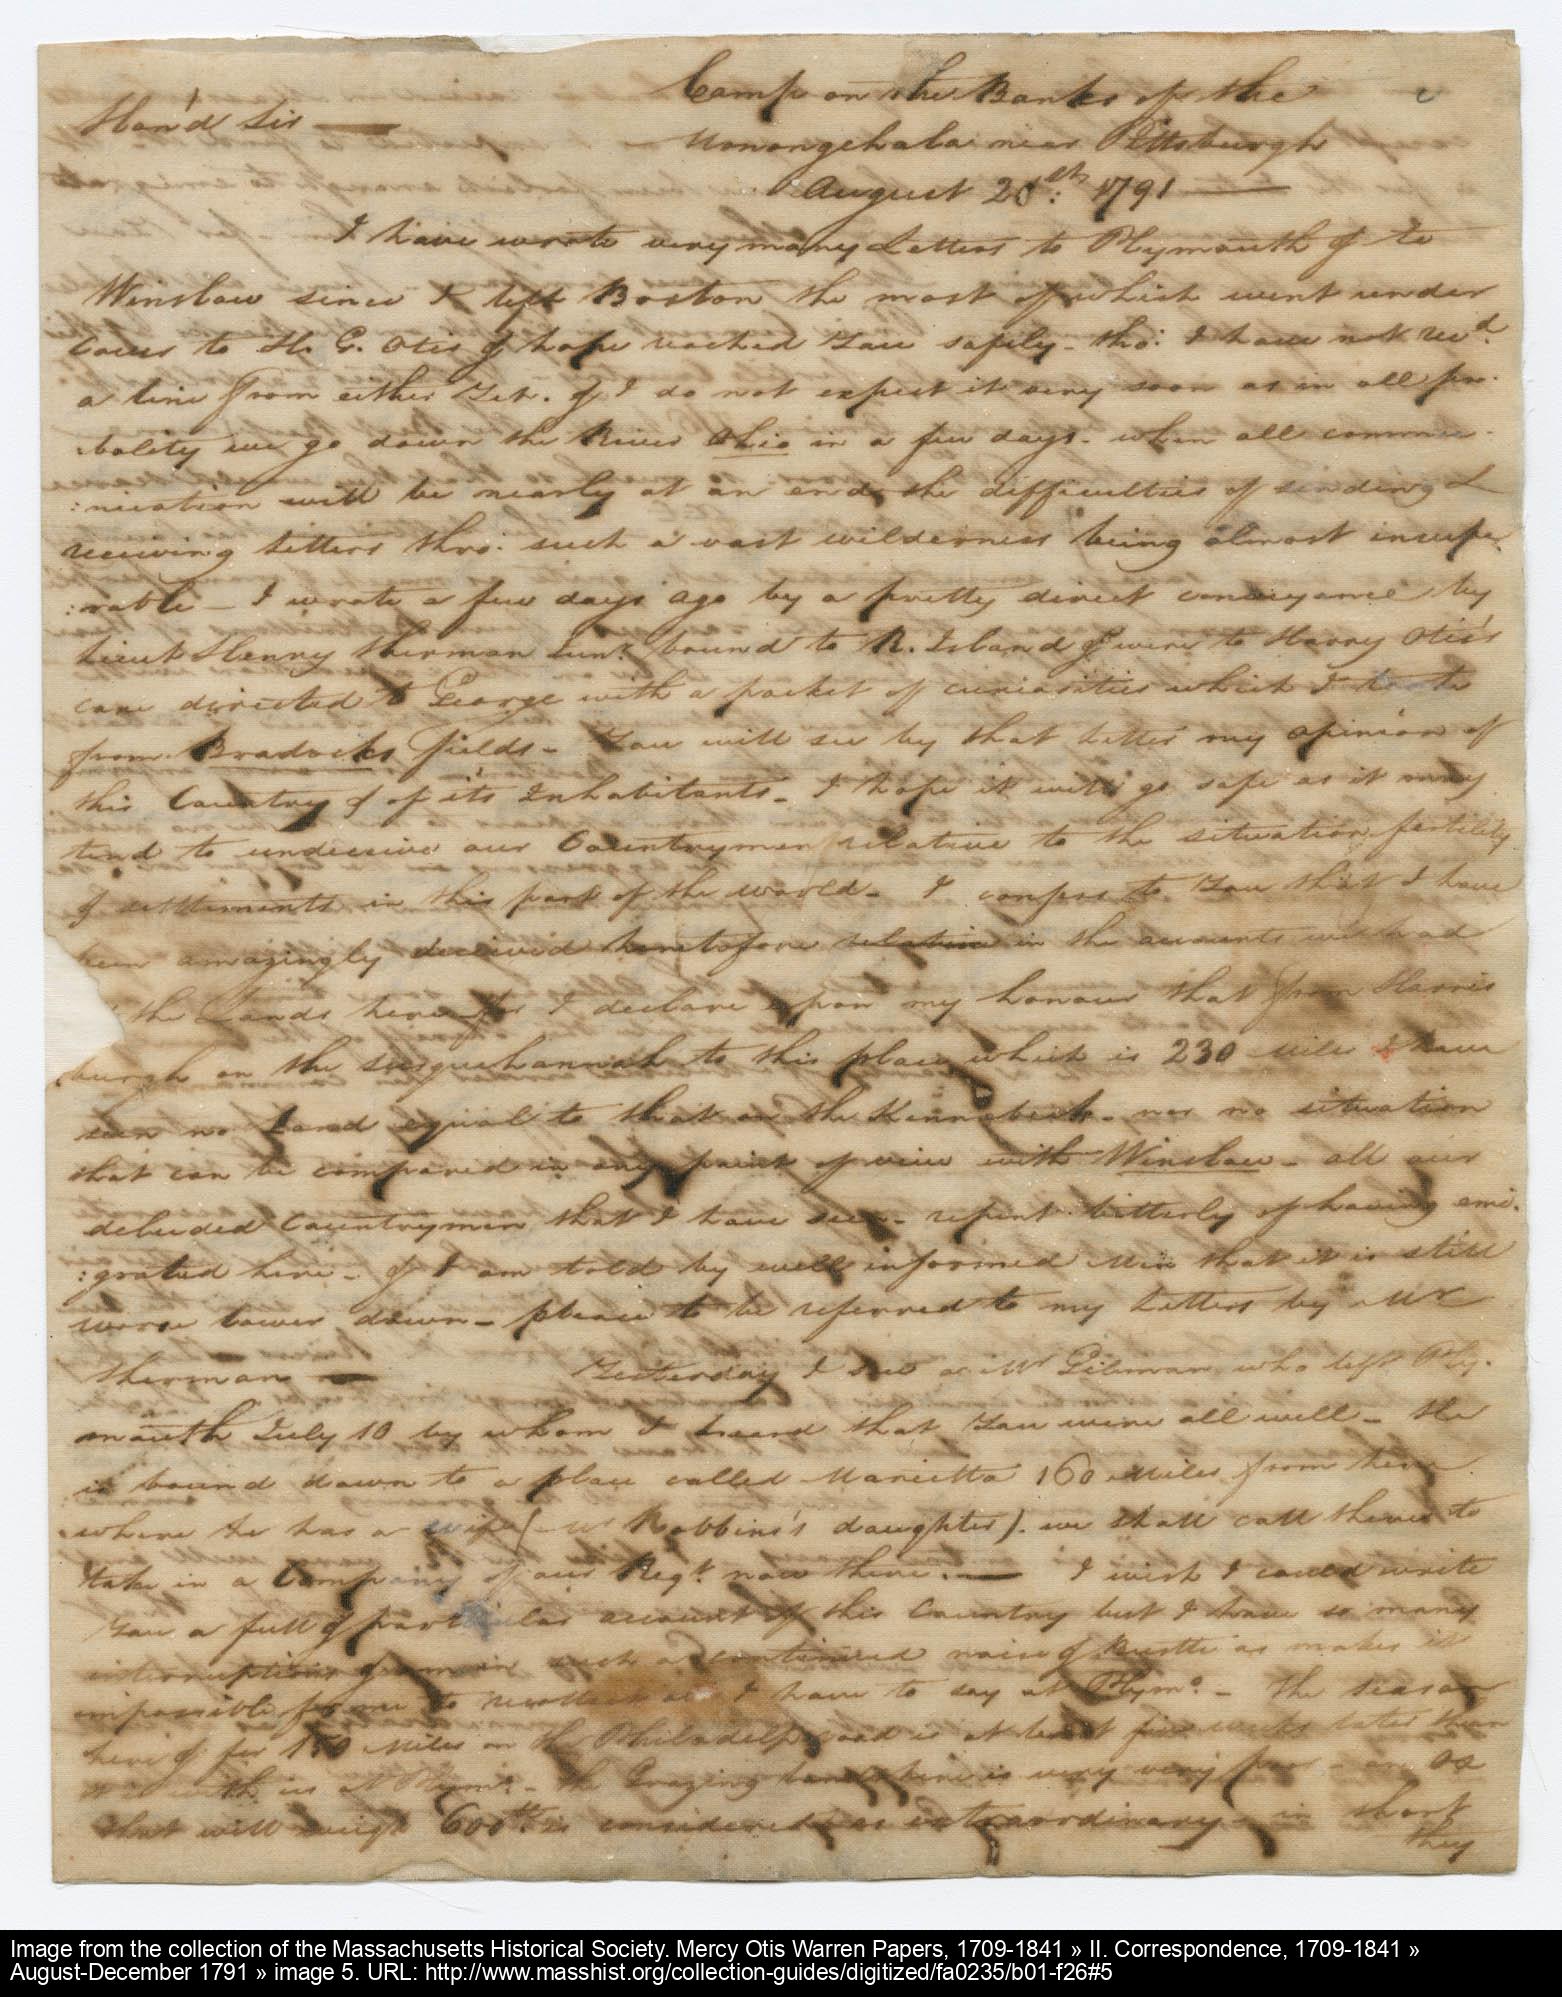 Camp on the Banks of the
Hon'd Sir —
Monongehala near Pittsburgh
August 20th: 1791 —
I have wrote very many Letters to Plymouth & to
Winslow since I left Boston the most of which went under
cover to H. G. Otis & hope reached You safely - tho: I have not recd.
a line from either Yet. & I do not expect it very soon as in all pro-
:bality we go down the River Ohio in a few days - when all commu-
:nication will be nearly at an end, the difficulties of sending &
receiving Letters thro: such a vast wilderness being almost insupe
:rable - I wrote a few days ago by a pretty direct conveyance by
Lieut Henry Sherman Junr. bound to R. Island & were to Harry Otis's
care directed to George with a packet of curiosities which I
from Bradocks fields - You will see by that letter my opinion of
this Country & of it's Inhabitants - I hope it will go safe as it may
tend to undeceive our Countrymen relative to the situation, fertility
& settlements in this part of the world - I confess to You that I have
been amazingly deceived heretofore relative in the accounts
the Lands here - for I declare upon my honour that from Harris
burgh on the susquehannah to this place which is 230 Miles I have
seen no Land equal to that on the Kennebeck - nor no situation
that can be compared in any point of view with Winslow - all our
deluded Countrymen that I have seen - repent bitterly of having emi-
:grated here - & I am told by well informed Men that it is still
worse lower down - please to be referred to my Letters by Mr
Sherman — Yesterday I saw a Mr Gilman who left Ply-
mouth July 10 by whom I heard that You were all well - He
is bound down to a place called Marietta 160 Miles from here
where he has a wife (Mr Robbins's daughter). we shall call there to
take in a Company of our Regt. now there. — I wish I could write
You a full & particular account of this Country but I have so many
interruptions & am in such a continued noise & Bustle as makes it
impossible for me to recollect all I have to say at Plymo. - The season
here & for 150 Miles on the Philadelpa road is at least five weeks later than
it is with us at Plymo. - the Grazing Land here is very very poor - an Ox
that will weigh 600lb is considered as extraordinary - in short
they
Image from the collection of the Massachusetts Historical Society. Mercy Otis Warren Papers, 1709-1841 » II. Correspondence, 1709-1841 »
August-December 1791 » image 5. URL: http://www.masshist.org/collection-guides/digitized/fa0235/b01-f26#5